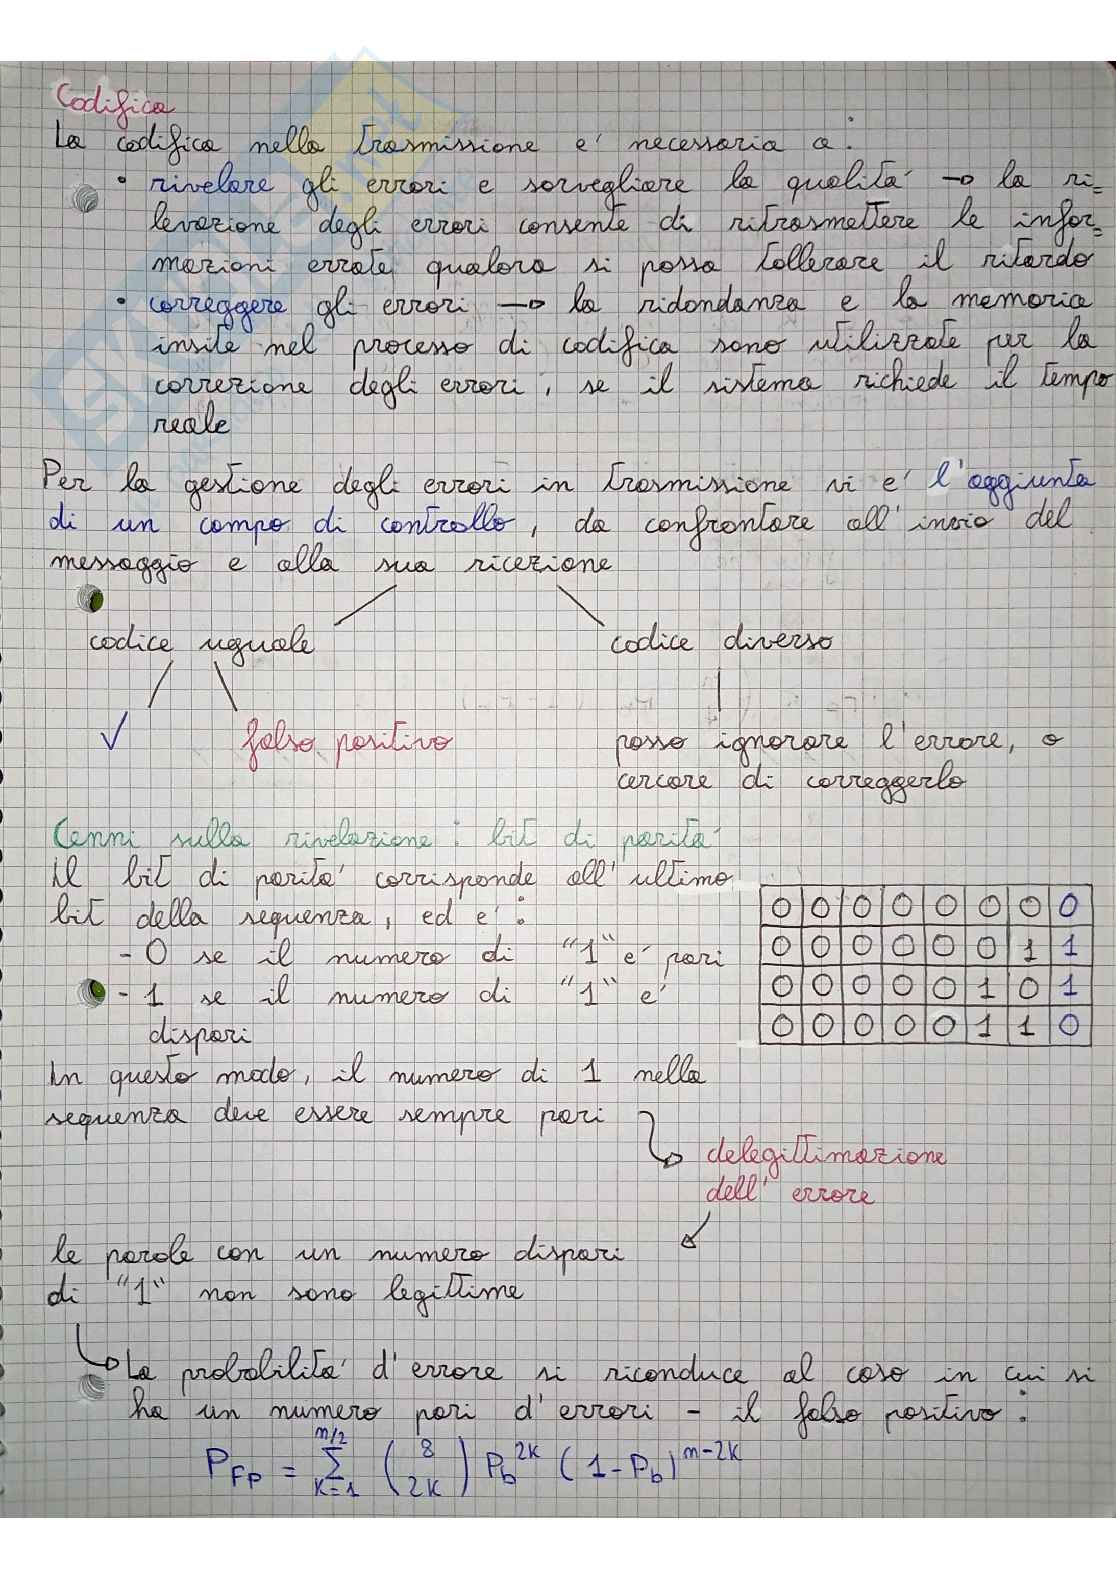 Codifica
La codifica nella trasmissione e' necessaria a:
• rivelare gli errori e sorvegliare la qualità → la ri=
levazione degli errori consente di ritrasmettere le infor=
mazioni errate qualora si possa tollerare il ritardo
• correggere gli errori → la ridondanza e la memoria
insite nel processo di codifica sono utilizzate per la
correzione degli errori, se il sistema richiede il tempo
reale
Per la gestione degli errori in trasmissione vi e' l'aggiunta
di un campo di controllo, da confrontare all'invio del
messaggio e alla sua ricezione
codice uguale codice diverso
✓ falso positivo posso ignorare l'errore, o
cercare di correggerlo
Cenni sulla rivelazione: bit di parità
Il bit di parità corrisponde all'ultimo
bit della sequenza, ed e':
- 0 se il numero di "1" e' pari
- 1 se il numero di "1" e'
dispari
0 0 0 0 0 0 0 0
0 0 0 0 0 0 1 1
0 0 0 0 0 1 0 1
0 0 0 0 0 1 1 0
In questo modo, il numero di 1 nella
sequenza deve essere sempre pari
delegittimazione
dell'errore
le parole con un numero dispari
di "1" non sono legittime
La probabilità d'errore si riconduce al caso in cui si
ha un numero pari d'errori - il falso positivo:
P_FP = Σ_{K=1}^{m/2} (8 2K) P_b^{2K} (1-P_b)^{m-2K}